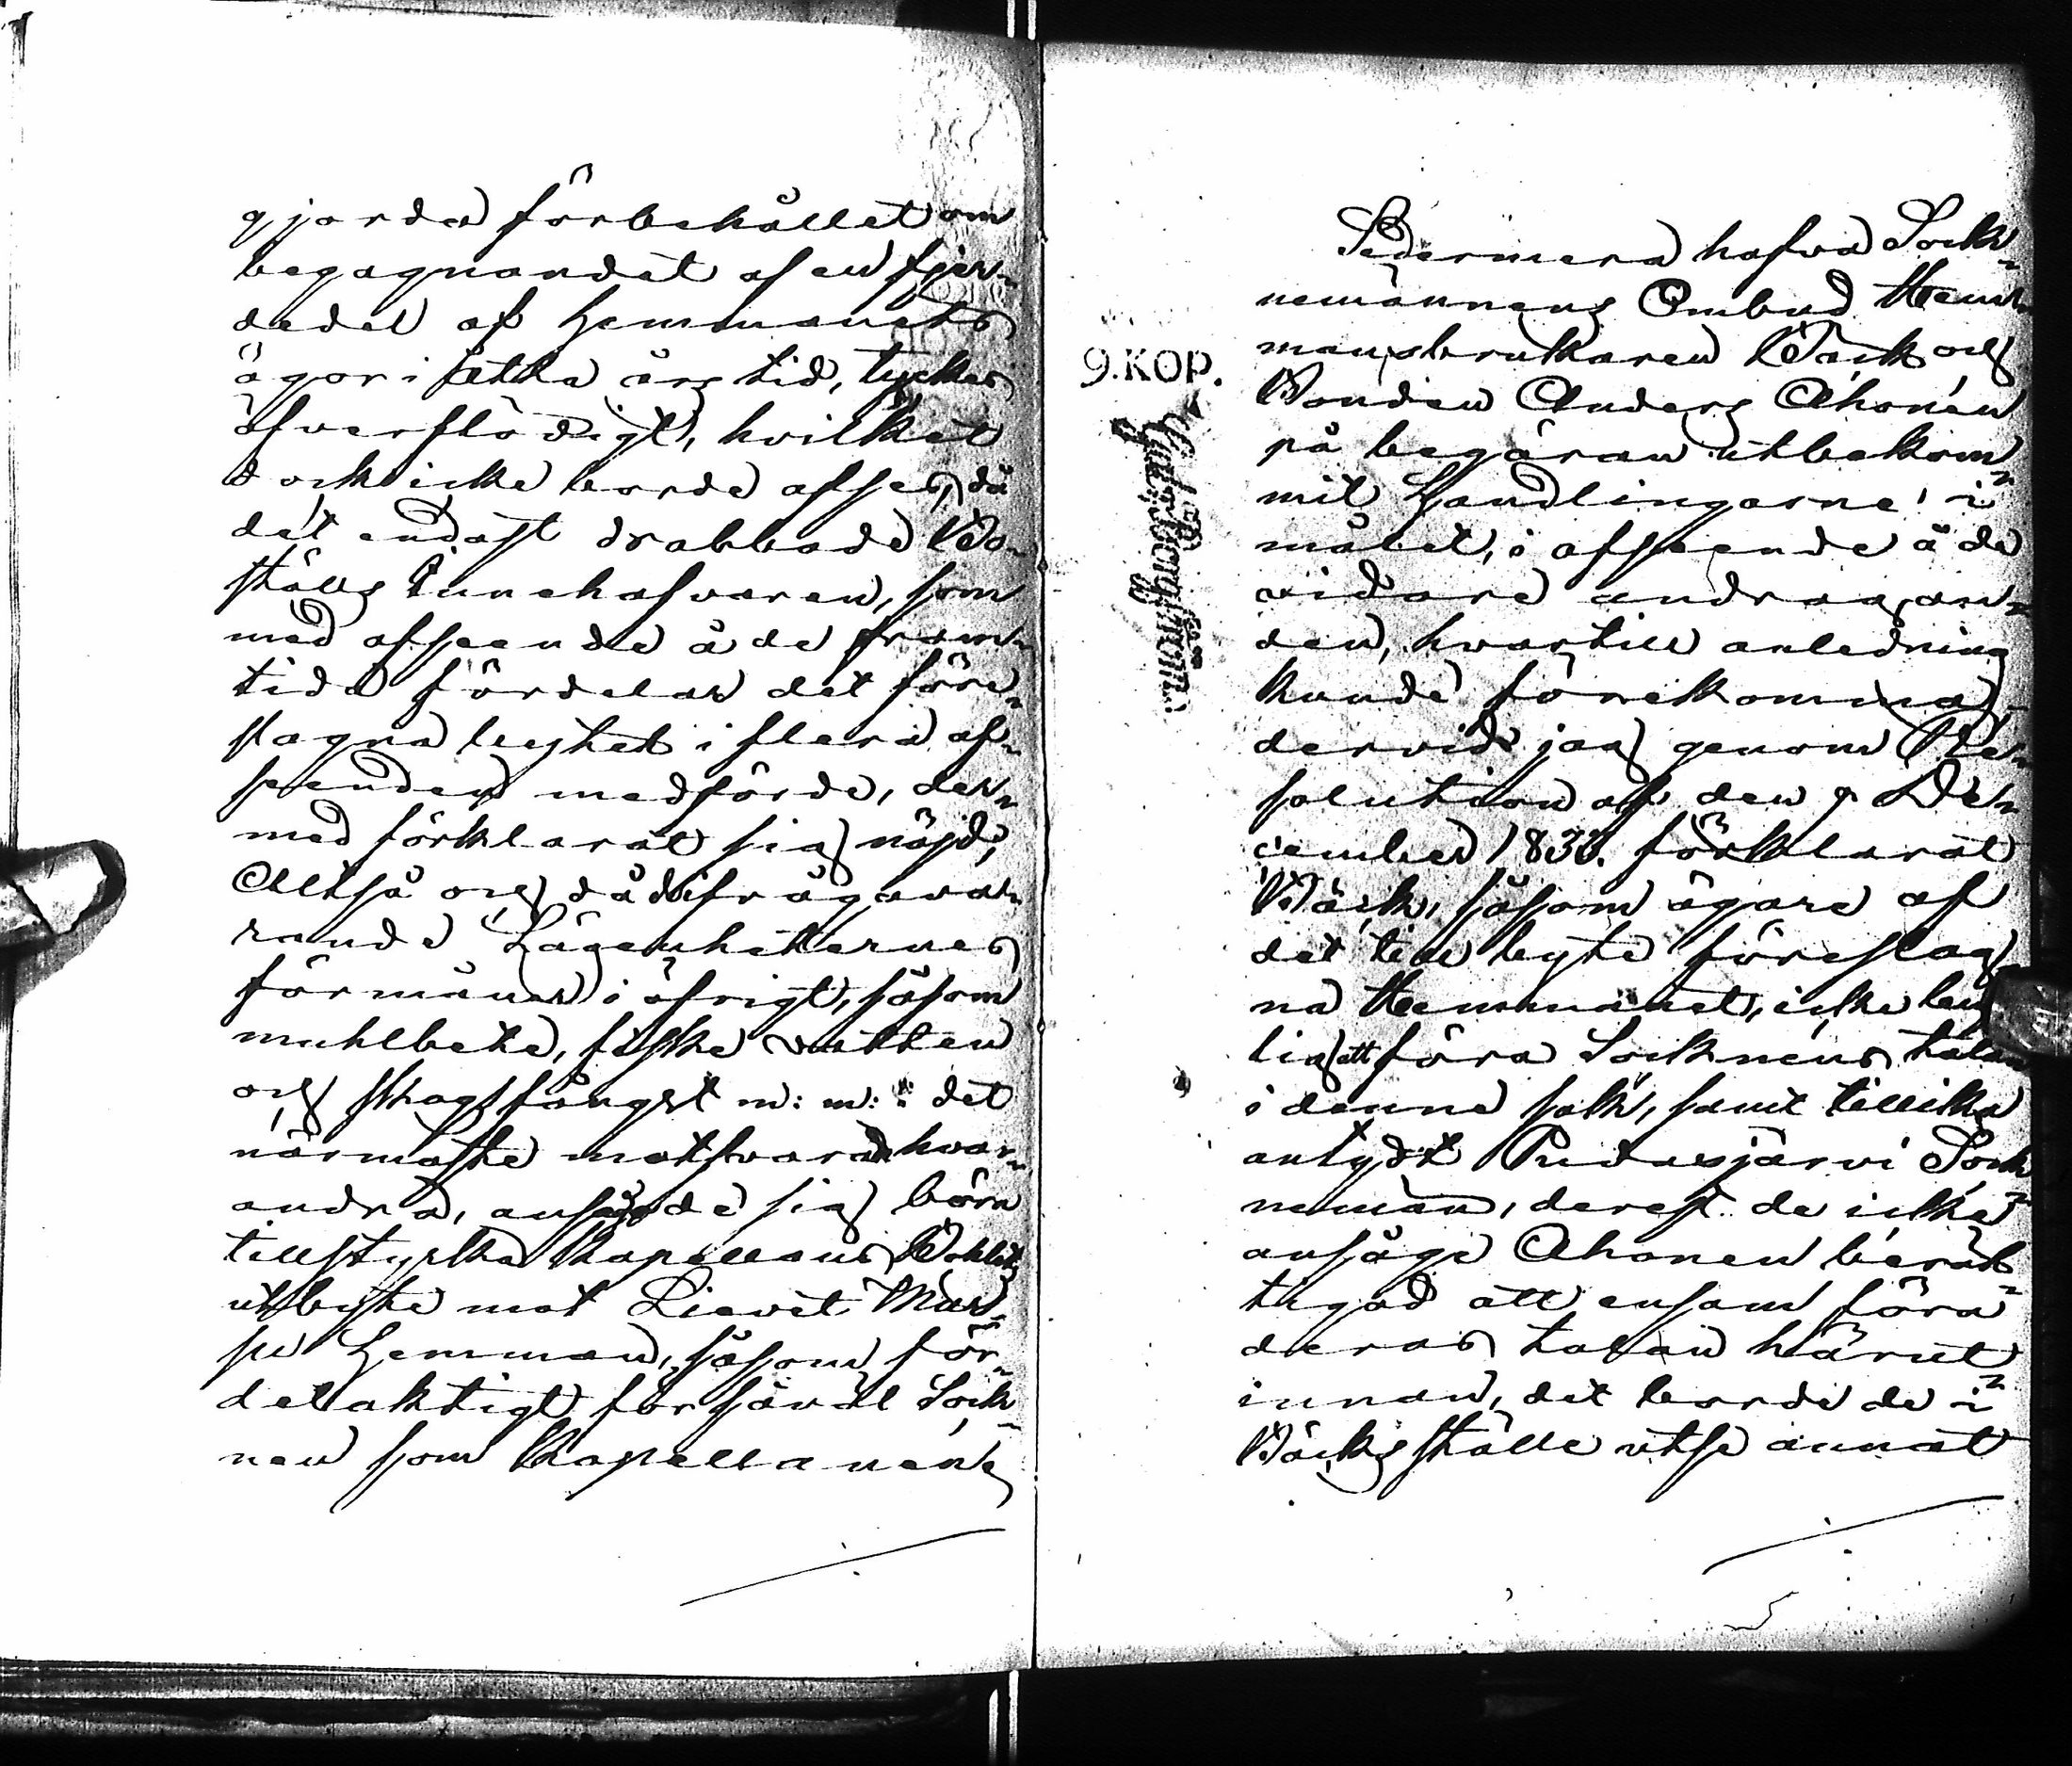 gjorda förbehållet om
begagnandet af en fjer-
dedel af hemmanets
ägor i åtta års tid, tyckes
öfverflödigt, hvilket
dock icke borde afses, då
det endast drabbade Bo-
ställs Innehafvaren, som
med afseende å de fram-
tida fördelar det före-
slagna bytet i flera af-
seenden medförde, der-
med förklarat sig nöjd,
Alltså och då ifrågava-
rande Lägenheternes
förmåner i öfrigt, såsom
muhlbete, fiske vatten
och skogsfångst m: m: det
närmaste motsvara hvar-
andra, ansågo de sig böra
tillstyrka Kapellans Bohlets
utbyte mot Liewet
hemman, såsom för-
delaktigt för såväl Sock-
nen som Kapellanens
Sedermera hafva Sock-
nemännens Ombud Hem-
mansbrukaren Bäck och
Bonden Anders Ahonen
på begäran utbekom-
mit Handlingarne i
målet, i afseende å de
vidare andragan-
den, hvartill anledning
kunde förekomma,
dervid jag genom Re-
solution af den 9 De-
cember 1833. förklarat
Bäck, såsom ägare af
det till byte föreslag-
na Hemmanet, icke
lig att föra Socknens talan
i denne sak, samt tillika
antydt Pudasjärvi Sock-
nemän, derest de icke
ansåge Ahonen berät-
tigad att ensam föra
deras talan härut-
innan, det borde de i
Bäcks ställe utse annat
9. KOP.